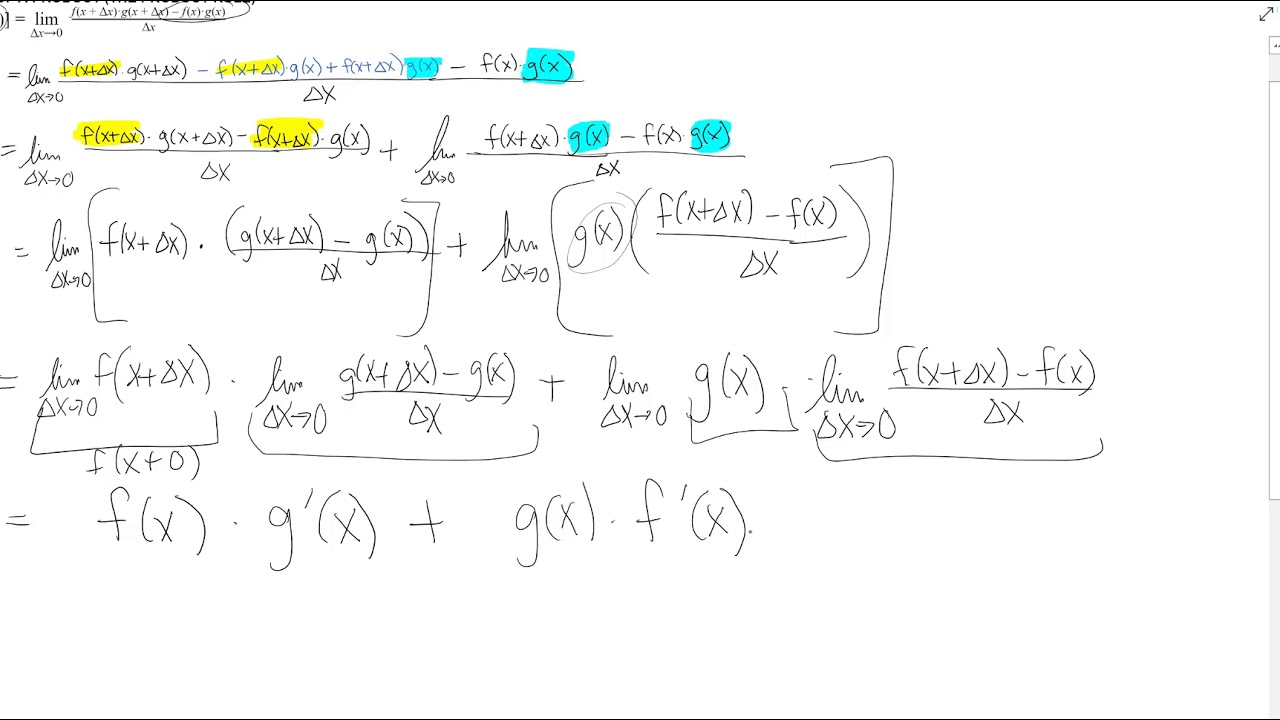 )] = lim Δx→0 f(x + Δx)·g(x + Δx) – f(x)·g(x) / Δx
= lim Δx→0 f(x+Δx)·g(x+Δx) – f(x+Δx)·g(x) + f(x+Δx)g(x) – f(x)·g(x) / Δx
= lim Δx→0 f(x+Δx)·g(x+Δx) – f(x+Δx)·g(x) / Δx + lim Δx→0 f(x+Δx)·g(x) – f(x)·g(x) / Δx
= lim Δx→0 [f(x+Δx)·(g(x+Δx) – g(x)) / Δx] + lim Δx→0 [g(x)(f(x+Δx) – f(x) / Δx)]
= lim Δx→0 f(x+Δx) · lim Δx→0 g(x+Δx) – g(x) / Δx + lim Δx→0 g(x) · lim Δx→0 f(x+Δx) – f(x) / Δx
f(x+0)
= f(x) · g'(x) + g(x) · f'(x).